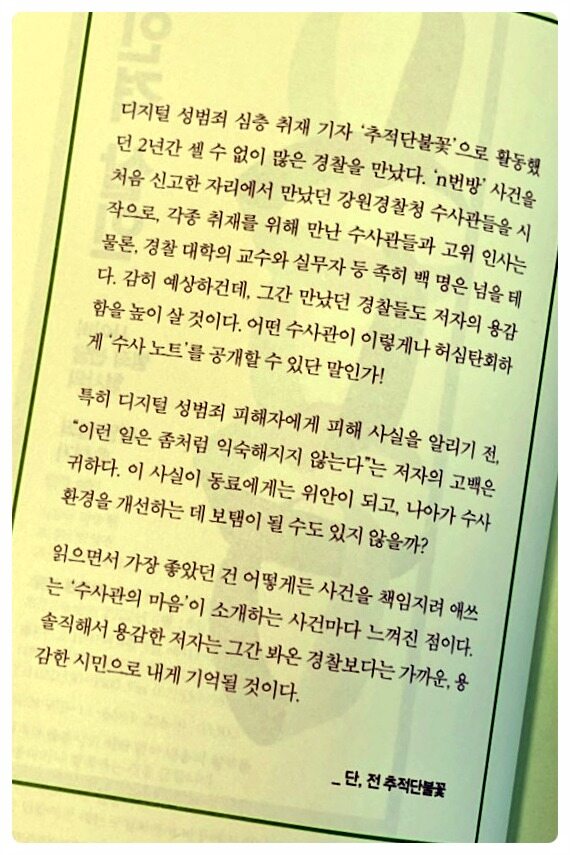 디지털 성범죄 심층 취재 기자 ‘추적단불꽃’으로 활동했
던 2년간 셀 수 없이 많은 경찰을 만났다. ‘n번방’ 사건을
처음 신고한 자리에서 만났던 강원경찰청 수사관들을 시
작으로, 각종 취재를 위해 만난 수사관들과 고위 인사는
물론, 경찰 대학의 교수와 실무자 등 족히 백 명은 넘을 테
다. 감히 예상하건데, 그간 만났던 경찰들도 저자의 용감
함을 높이 살 것이다. 어떤 수사관이 이렇게나 허심탄회하
게 ‘수사 노트’를 공개할 수 있단 말인가!
특히 디지털 성범죄 피해자에게 피해 사실을 알리기 전,
“이런 일은 좀처럼 익숙해지지 않는다”는 저자의 고백은
귀하다. 이 사실이 동료에게는 위안이 되고, 나아가 수사
환경을 개선하는 데 보탬이 될 수도 있지 않을까?
읽으면서 가장 좋았던 건 어떻게든 사건을 책임지려 애쓰
는 ‘수사관의 마음’이 소개하는 사건마다 느껴진 점이다.
솔직해서 용감한 저자는 그간 봐온 경찰보다는 가까운, 용
감한 시민으로 내게 기억될 것이다.
_ 단, 전 추적단불꽃